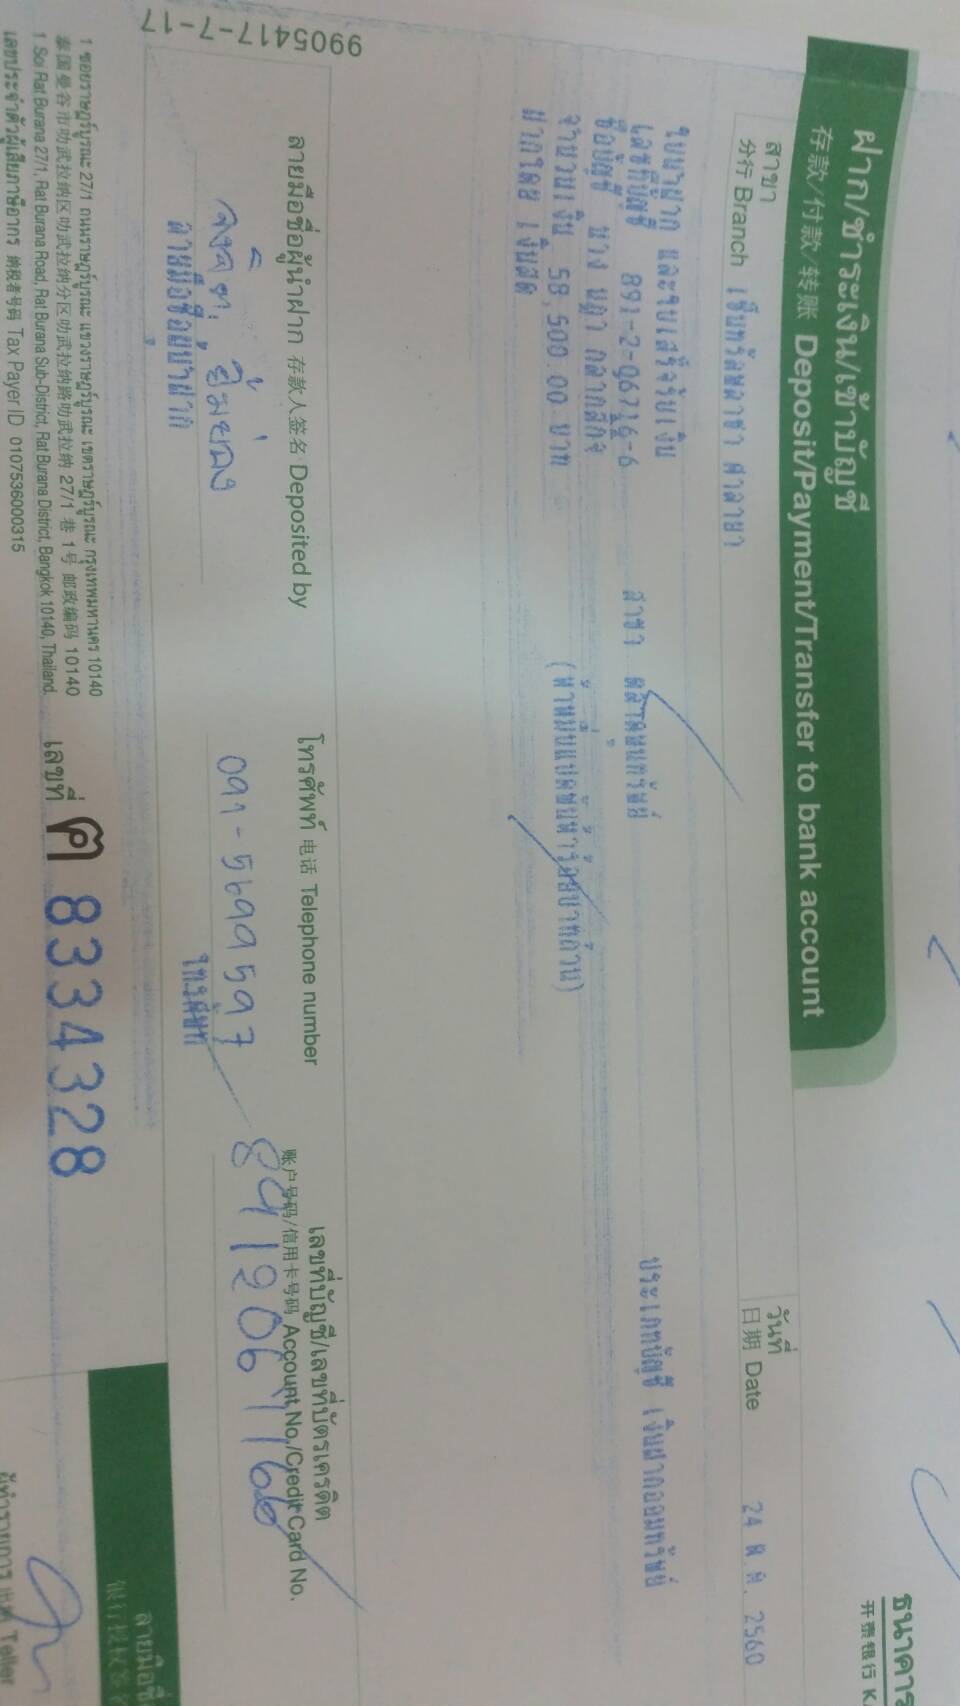 ธนาคาร
开泰银行 K
ฝาก/ชำระเงิน/เข้าบัญชี
存款/付款/转账 Deposit/Payment/Transfer to bank account
สาขา
分行 Branch เซ็นทรัลพลาซา ศาลายา
วันที่
日期 Date 24 2560
ใบนำฝาก และใบเสร็จรับเงิน
เลขที่บัญชี 891-2-06716-6 สาขา ตลาดพูนทรัพย์ ประเภทบัญชี เงินฝากออมทรัพย์
ชื่อบัญชี นาง
จำนวนเงิน 58,500.00 บาท (ห้าหมื่นแปดพันห้าร้อยบาทถ้วน)
ฝากโดย เงินสด
ลายมือชื่อผู้นำฝาก 存款人签名 Deposited by
จงจิต ยิ้มย่อง
ลายมือชื่อผู้นำฝาก
โทรศัพท์ 电话 Telephone number
091-5699597
โทรศัพท์
เลขที่บัญชี/เลขที่บัตรเครดิต
账户号码/信用卡号码 Account No./Credit Card No.
8912067166
9905417-7-17
1 ซอยราษฎร์บูรณะ 27/1 ถนนราษฎร์บูรณะ แขวงราษฎร์บูรณะ เขตราษฎร์บูรณะ กรุงเทพมหานคร 10140
泰国曼谷市叻武拉纳区叻武拉纳分区叻武拉纳路叻武拉纳 27/1 巷 1号 邮政编码 10140
1 Soi Rat Burana 27/1, Rat Burana Road, Rat Burana Sub-District, Rat Burana District, Bangkok 10140, Thailand.
เลขประจำตัวผู้เสียภาษีอากร 纳税者号码 Tax Payer ID 0107536000315
เลขที่ ฅ 8334328
ลายมือชื่
银行授权签
ผู้ทำรายการ 出纳 Teller